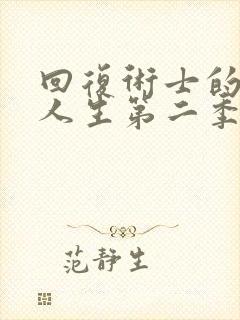 回復術士的
人生第二季
范静生